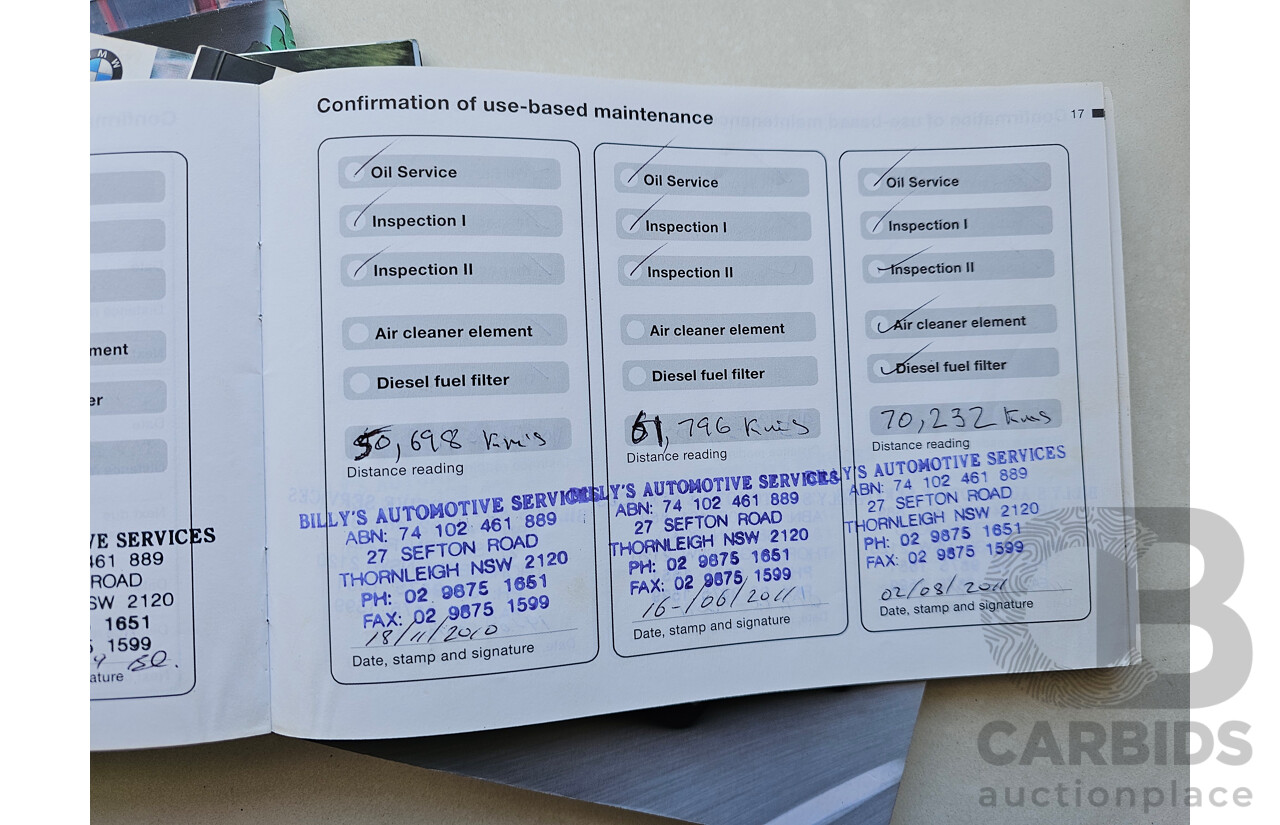 BMW
Confirmation of use-based maintenance
17
ment
er
VE SERVICES
461 889
ROAD
SW 2120
1651
1599
ature
Oil Service
Inspection I
Inspection II
Air cleaner element
Diesel fuel filter
50,698 Km's
Distance reading
BILLY'S AUTOMOTIVE SERVICES
ABN: 74 102 461 889
27 SEFTON ROAD
THORNLEIGH NSW 2120
PH: 02 9875 1651
FAX: 02 9875 1599
18/11/2010
Date, stamp and signature
Oil Service
Inspection I
Inspection II
Air cleaner element
Diesel fuel filter
61,796 Km's
Distance reading
BILLY'S AUTOMOTIVE SERVICES
ABN: 74 102 461 889
27 SEFTON ROAD
THORNLEIGH NSW 2120
PH: 02 9875 1651
FAX: 02 9875 1599
16-/06/2011
Date, stamp and signature
Oil Service
Inspection I
Inspection II
Air cleaner element
Diesel fuel filter
70,232 Kms
Distance reading
BILLY'S AUTOMOTIVE SERVICES
ABN: 74 102 461 889
27 SEFTON ROAD
THORNLEIGH NSW 2120
PH: 02 9875 1651
FAX: 02 9875 1599
02/08/2011
Date, stamp and signature
CARBIDS
auctionplace